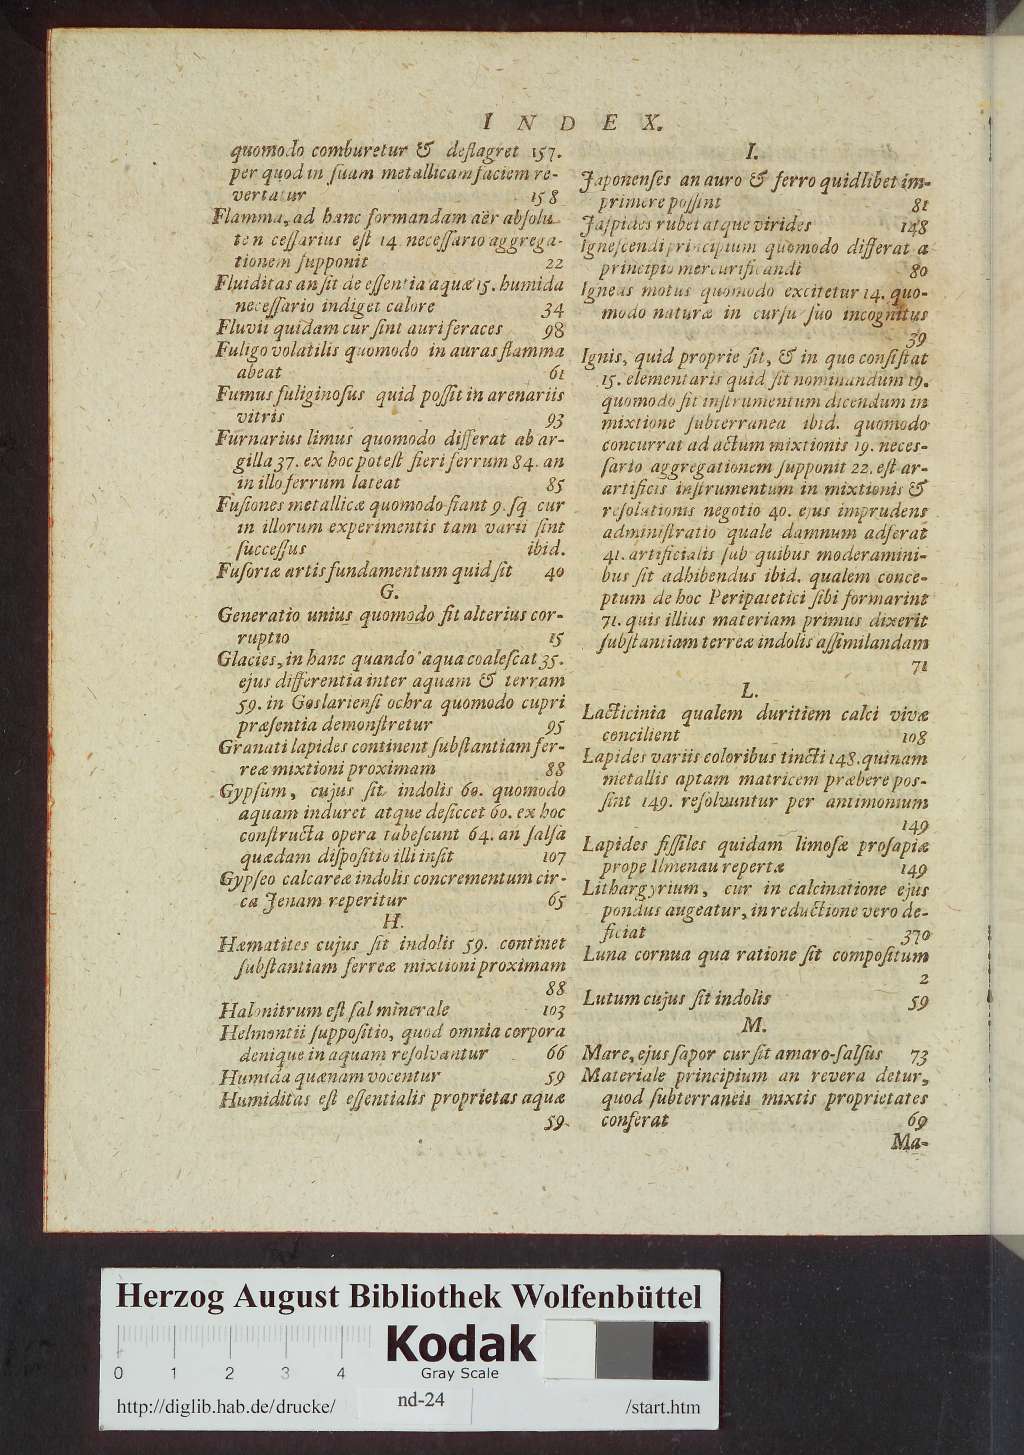 INDEX.
quomodo comburetur & deflagret 157.
per quod in ſuam metallicam faciem re-
vertatur 158
Flamma, ad hanc formandam aër abſolu
te n ceſſarius eſt 14 neceſſario aggrega-
tionem ſupponit 22
Fluiditas an ſit de eſſentia aquæ 15. humida
neceſſario indiget calore 34
Fluvii quidam cur ſint auri feraces 98
Fuligo volatilis quomodo in auras flamma
abeat 61
Fumus fuliginoſus quid poſſit in arenariis
vitris 93
Furnarius limus quomodo differat ab ar-
gilla 37. ex hoc poteſt fieri ferrum 84. an
in illo ferrum lateat 85
Fuſiones metallicæ quomodo fiant 9. ſq. cur
in illorum experimentis tam varii ſint
ſucceſſus ibid.
Fuſoriæ artis fundamentum quid ſit 40
G.
Generatio unius quomodo ſit alterius cor-
ruptio 15
Glacies, in hanc quando aqua coaleſcat 35.
ejus differentia inter aquam & terram
59. in Goslarienſi ochra quomodo cupri
præſentia demonſtretur 95
Granati lapides continent ſubſtantiam fer-
reæ mixtioni proximam 88
Gypſum, cujus ſit indolis 60. quomodo
aquam induret atque deſiccet 60. ex hoc
conſtructa opera tabeſcunt 64. an ſalſa
quædam diſpoſitio illi inſit 107
Gypſeo calcareæ indolis concrementum cir-
ca Jenam reperitur 65
H.
Hæmatites cujus ſit indolis 59. continet
ſubſtantiam ferreæ mixtioni proximam
88
Halonitrum eſt ſal minerale 103
Helmontii ſuppoſitio, quod omnia corpora
denique in aquam reſolvantur 66
Humida quænam vocentur 59
Humiditas eſt eſſentialis proprietas aquæ
59.
I.
Japonenſes an auro & ferro quidlibet im-
primere poſſint 81
Jaſpides rubei atque virides 148
Igneſcendi principium quomodo differat a
principio mercurificandi 80
Igneus motus quomodo excitetur 14. quo-
modo naturæ in curſu ſuo incognitus
39
Ignis, quid proprie ſit, & in quo conſiſtat
15. elementaris quid ſit nominandum 19.
quomodo ſit inſtrumentum dicendum in
mixtione ſubterranea ibid. quomodo
concurrat ad actum mixtionis 19. neces-
ſario aggregationem ſupponit 22. eſt ar-
artificis inſtrumentum in mixtionis &
reſolutionis negotio 40. ejus imprudens
adminiſtratio quale damnum adferat
41. artificialis ſub quibus moderamini-
bus ſit adhibendus ibid. qualem conce-
ptum de hoc Peripatetici ſibi formarint
71. quis illius materiam primus dixerit
ſubſtantiam terreæ indolis aſſimilandam
71
L.
Lacticinia qualem duritiem calci vivæ
concilient 108
Lapides variis coloribus tincti 148. quinam
metallis aptam matricem præbere pos-
ſint 149. reſolvuntur per antimonium
149
Lapides fiſſiles quidam limoſæ proſapiæ
prope Ilmenau repertæ 149
Lithargyrium, cur in calcinatione ejus
pondus augeatur, in reductione vero de-
ficiat 370
Luna cornua qua ratione ſit compoſitum
2
Lutum cujus ſit indolis 59
M.
Mare, ejus ſapor cur ſit amaro-ſalſus 73
Materiale principium an revera detur,
quod ſubterraneis mixtis proprietates
conferat 69
Ma-
Herzog August Bibliothek Wolfenbüttel
Kodak
Gray Scale
0 1 2 3 4
http://diglib.hab.de/drucke/ nd-24 /start.htm